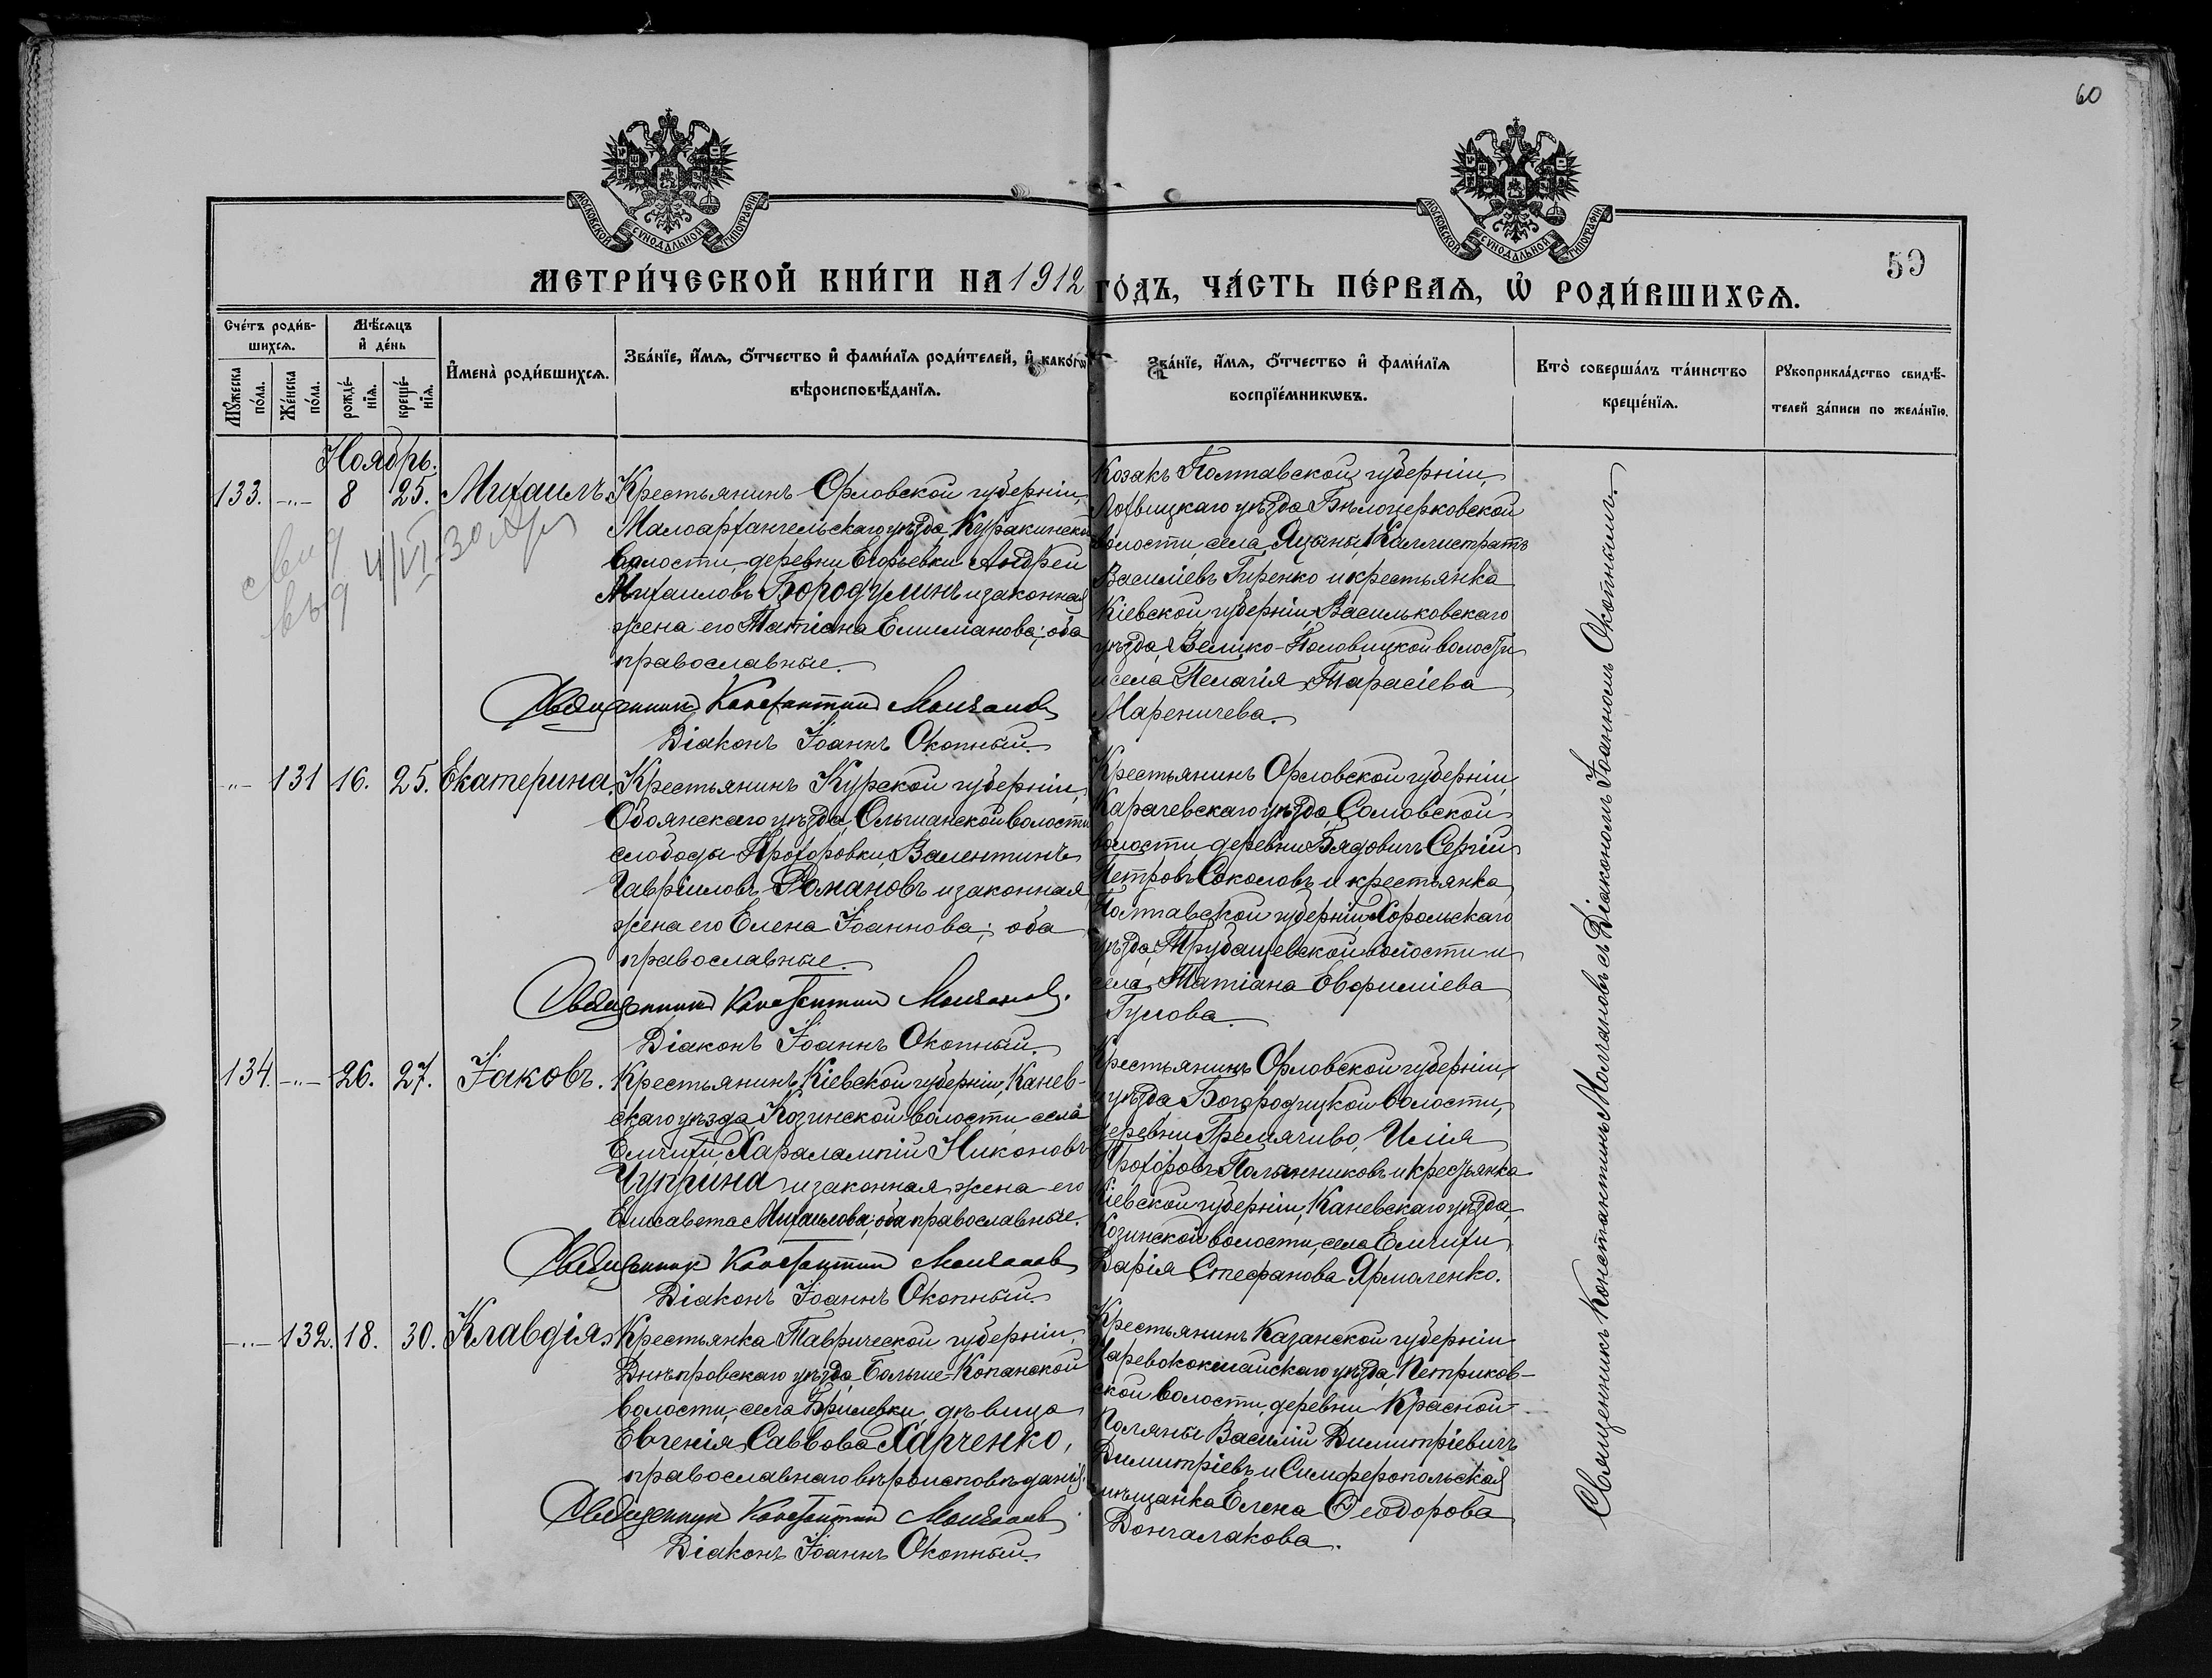 60
МОСКОВСКОЙ СѴНОДАЛЬНОЙ ТИПОГРАФІИ
МОСКОВСКОЙ СѴНОДАЛЬНОЙ ТИПОГРАФІИ
59
МЕТРИ́ЧЕСКОЙ КНИ́ГИ НА 1912 ГО́ДЪ, ЧА́СТЬ ПЕ́РВАѦ, Ѽ РОДИ́ВШИХСѦ.
Сче́тъ роди́в-
шихсѧ.
Мѣ́сѧцъ
и҆ де́нь
Мꙋ́жеска
по́ла.
Же́нска
по́ла.
рожде́-
нїѧ.
креще́-
нїѧ.
И҆мена̀ роди́вшихсѧ.
Зва́нїе, и҆́мѧ, ѻ҆́тчество и҆ фами́лїѧ роди́телей, и҆ како́гѡ
вѣроисповѣ́данїѧ.
Зва́нїе, и҆́мѧ, ѻ҆́тчество и҆ фами́лїѧ
воспрїе́мникѡвъ.
Кто̀ соверша́лъ та́инство
креще́нїѧ.
Рꙋкоприкла́дство свидѣ́-
телей за́писи по жела́нїю.
Ноябрь.
133. -"- 8 25. Михаилъ.
Крестьянинъ Орловской губерніи,
Малоархангельскаго уѣзда, Куракинской
волости, деревни Егорьевки Андрей
Михаиловъ Бородулинъ и законная
жена его Татіана Емиліанова; оба
православные.
Священникъ Константинъ Молчановъ
Діаконъ Іоаннъ Окопный.
Козакъ Полтавской губерніи,
Лохвицкаго уѣзда Бѣлоцерковской
волости, села Яцыны, Каллистратъ
Василіевъ Гиренко и крестьянка
Кіевской губерніи, Васильковскаго
уѣзда, Велико-Половицкой волости
и села Пелагія Тарасіева
Мареничева.
свид
выд 4/VI 30
-"- 131 16. 25. Екатерина.
Крестьянинъ Курской губерніи,
Обоянскаго уѣзда, Ольшанской волости
слободы Прохоровки, Валентинъ
Гавріиловъ Романовъ и законная
жена его Елена Іоаннова; оба
православные.
Священникъ Константинъ Молчановъ.
Діаконъ Іоаннъ Окопный.
Крестьянинъ Орловской губерніи,
Карачевскаго уѣзда, Сомовской
волости деревни Бядовичъ Сергій
Петровъ Соколовъ и крестьянка
Полтавской губерніи, Хорольскаго
уѣзда, Трубайцевской волости и
села, Татіана Евфиміева
134. -"- 26. 27. Іаковъ.
Крестьянинъ Кіевской губерніи, Канев-
скаго уѣзда, Козинской волости, села
Емчихи, Харалампій Никоновъ
Чуприна и законная жена его
Елисавета Михаилова; оба православные.
Священникъ Константинъ Молчановъ
Діаконъ Іоаннъ Окопный.
Крестьянинъ Орловской губерніи,
и уѣзда Богородицкой волости,
деревни Гремячиво, Илія
Прохоровъ Полынниковъ и крестьянка
Кіевской губерніи, Каневскаго уѣзда,
Козинской волости, села Емчихи,
Дарія Стефанова Ярмоленко.
-"- 132. 18. 30. Клавдія.
Крестьянка Таврической губерніи,
Днѣпровскаго уѣзда, Больше-Копанской
волости, села Брилевки, дѣвица
Евгенія Саввова Харченко,
православнаго вѣроисповѣданія.
Священникъ Константинъ Молчановъ
Діаконъ Іоаннъ Окопный.
Крестьянинъ Казанской губерніи
Царевококшайскаго уѣзда, Петриков-
ской волости, деревни Красной
Поляны Василій Димитріевичъ
Димитріевъ и Симферопольская
мѣщанка Елена Ѳеодорова
Дончалакова.
Священникъ Константинъ Молчановъ съ Діакономъ Іоанномъ Окопнымъ.